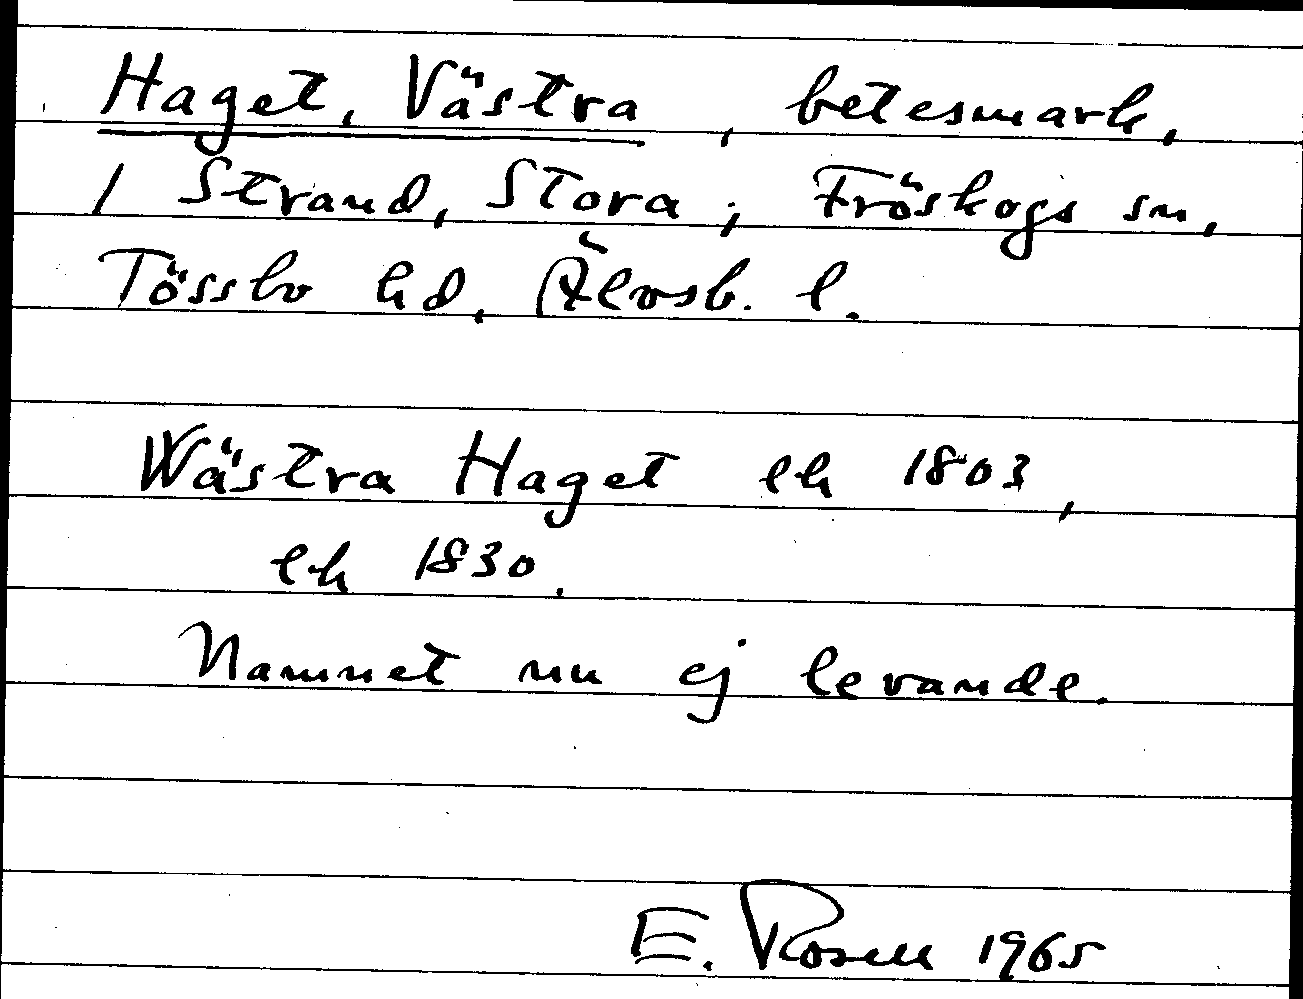 Haget, Västra, betesmark,
1 Strand, Stora; Fröskogs sn,
Tössbo hd, Älvsb. l.
Wästra Haget ek 1803,
ek 1830.
Namnet nu ej levande.
E. Rosell 1965